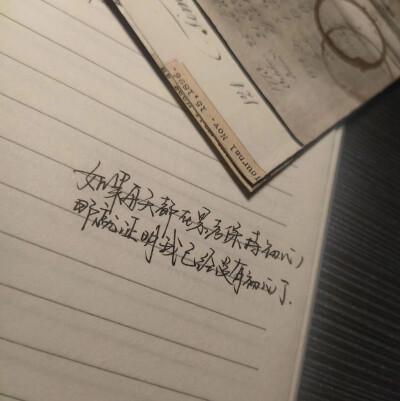 Journal Nov. 15, 1896.
如果每天都在思考保持初心，
那就证明我已经没有初心了.